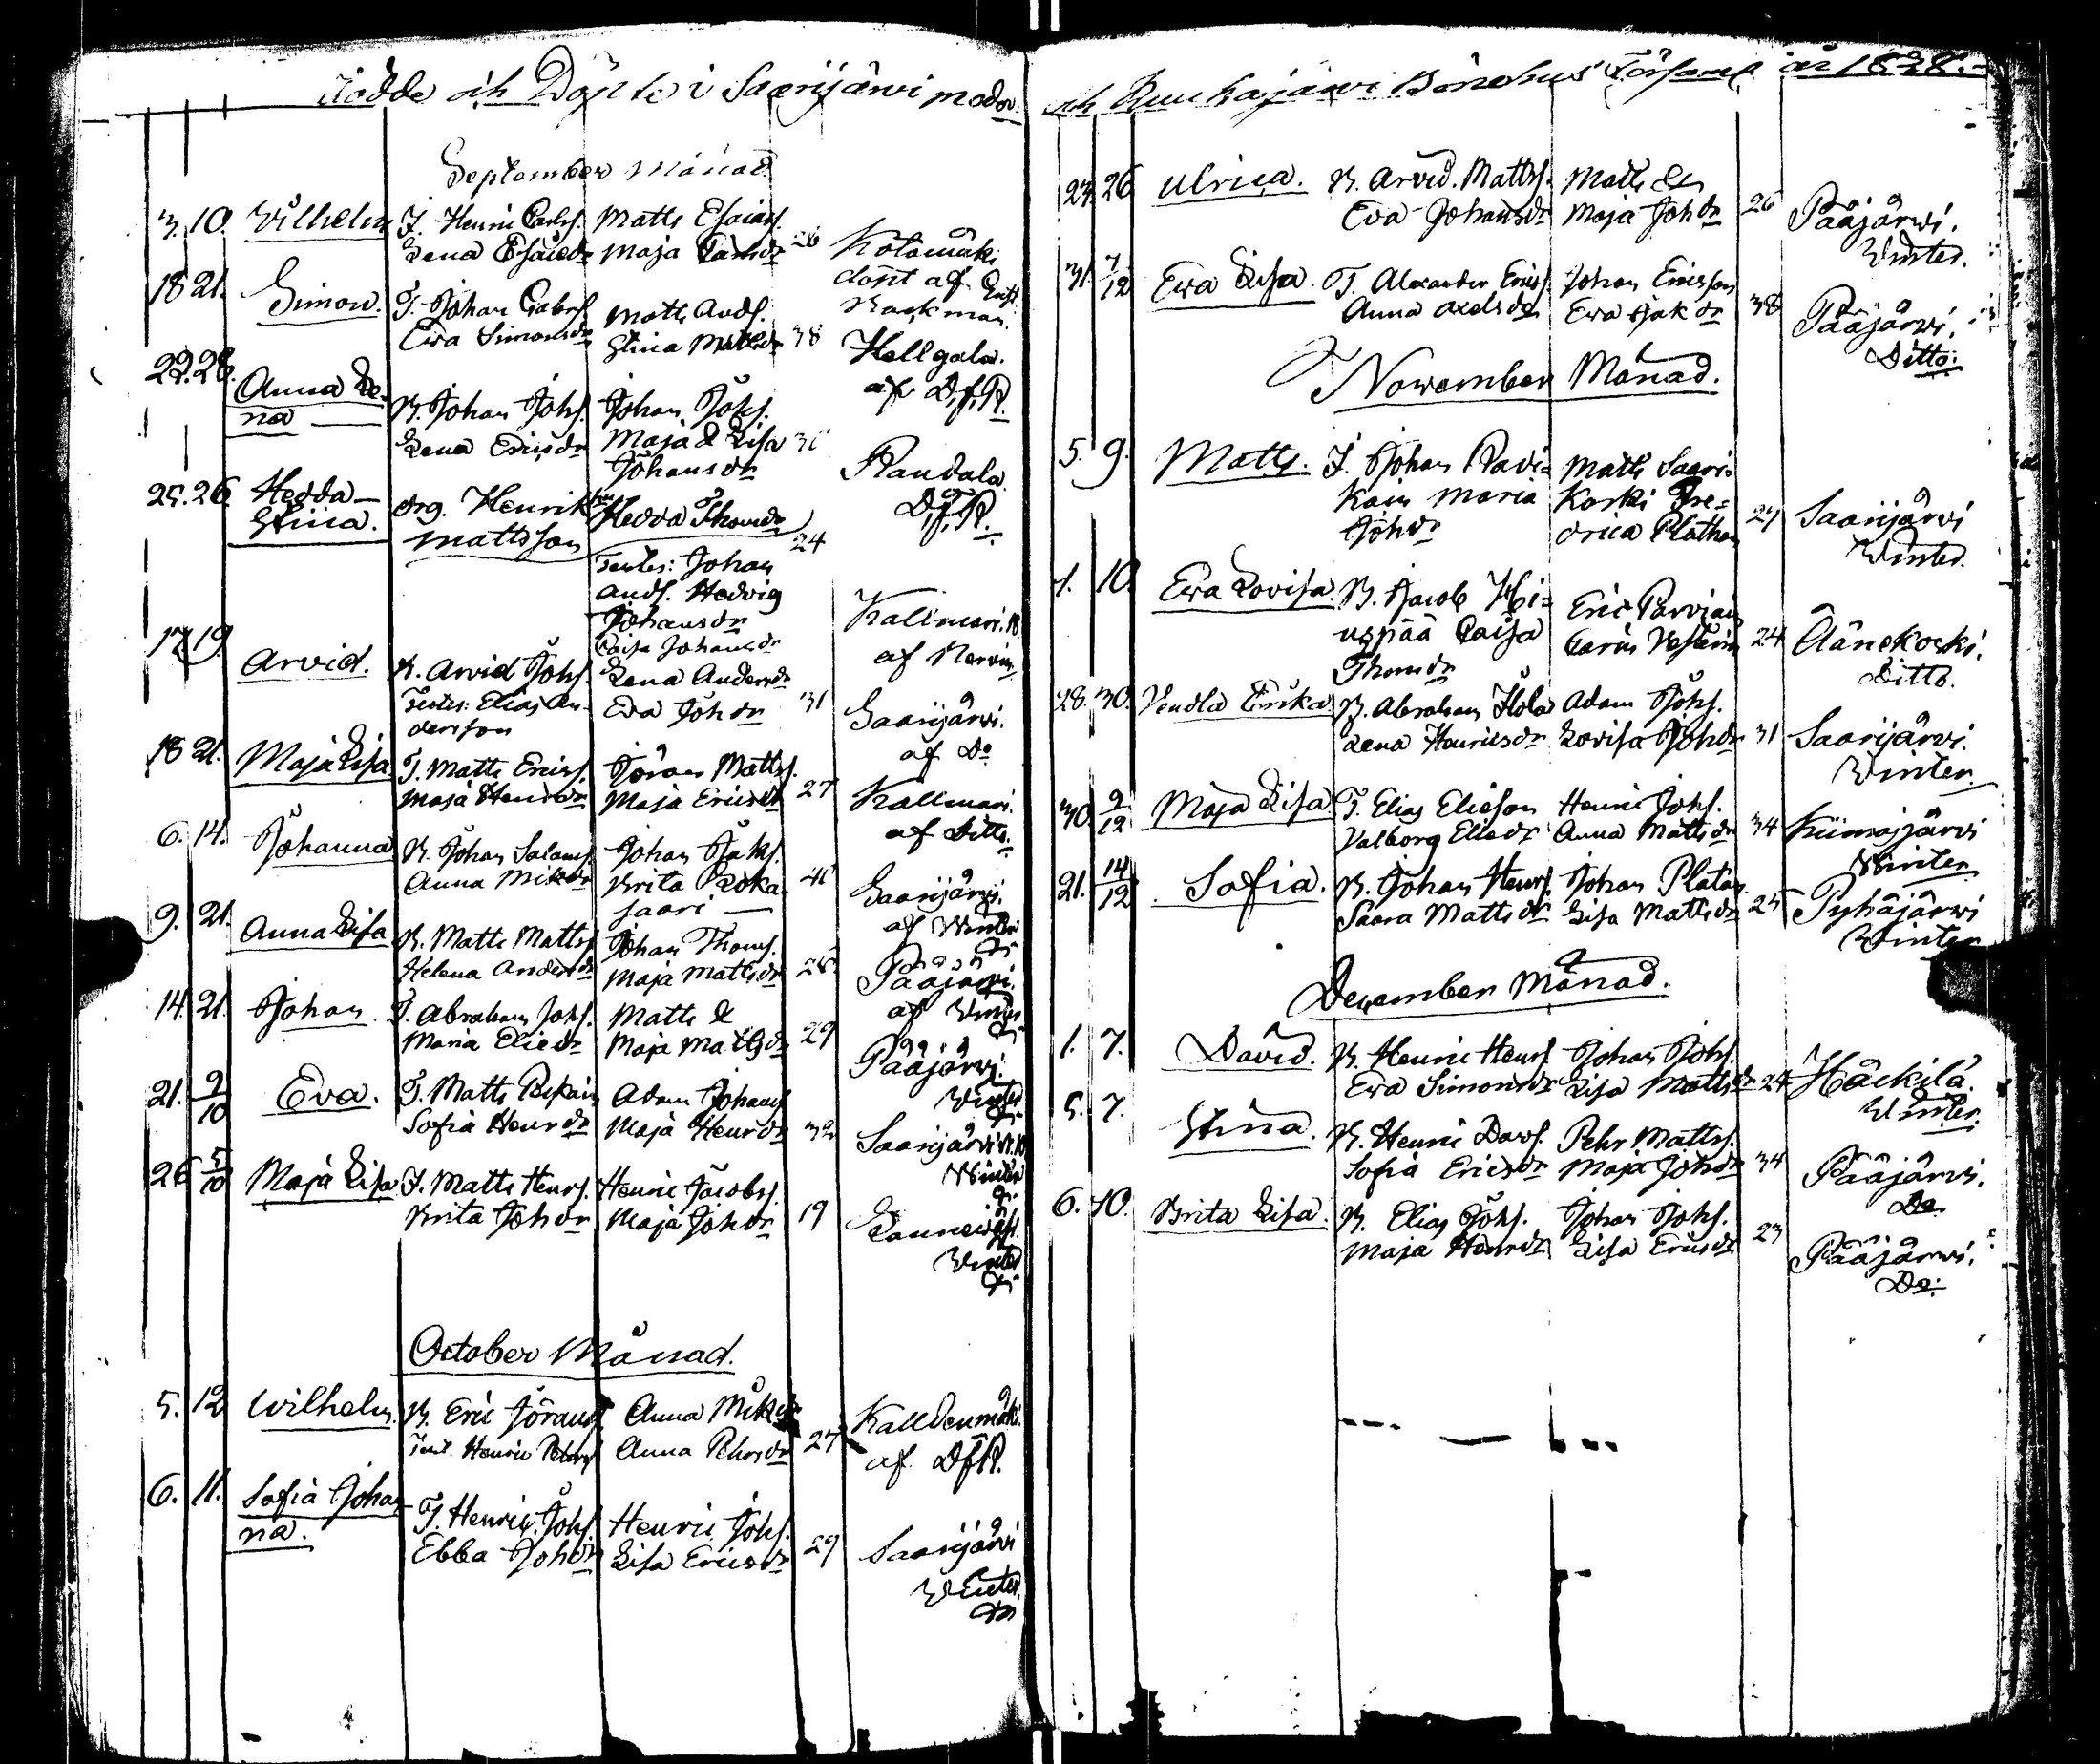 Födde och Döpte i Saarijärwi moder
September Månad
3. 10. Wilhelm T. Henric Carls. Matts Esaias.
Lena Esaiedr Maja Carlsdr 26 Kolamäki
döpt af
Backman.
18 21. Simon. T. Johan Gabrs. Matts Ands.
Ewa Simonsdr Stina Mattsdr 38 Hellgala.
af D.f.R.
22. 28. Anna Le-
na B. Johan Johs. Johan Johs.
Lena Ericsdr Maja & Lisa
Johansdr Randala
D.f.R.
25. 26. Hedda
Stina. drg. Henrik Hedda Thomdr
Mattsson 24
Testes: Johan
Ands. Hedvig
Johansdr Kallmari. 18
Caisa Johansdr af
17 19. Arvid. B. Arvid Johs. Lena Andersdr
Testes: Elias An- Eva Johdr 31 Saarijärvi.
dersson af Do
18 21. Maja Lisa T. Matts Erics. Jöran Matts.
Maja Henrsdr Maja Ericsdr 27 Kallmari.
af Ditto.
6. 14. Johanna B. Johan Salams. Johan Jaks.
Anna Mikedr Brita Roka-
saari Saarijärvi.
af Winter
9. 21. Anna Lisa B. Matts Matts. Johan Thoms.
Helena Andersdr Maja Mattsdr 28 Pääjärvi.
af Winter
14. 21. Johan. T. Abraham Johs. Matts &
Maria Eliedr Maja Mattsdr 29 Pääjärvi.
Winter
21. 9/10 Eva. T. Matts Adam Johans
Sofia Henrdr Maja Henrdr 32 Saarijärvi
Winter
26 5/10 Maja Lisa T. Matts Henrs. Henric Jacobs.
Brita Johdr Maja Johdr 19
Winter
October Månad.
5. 12 Wilhelm. B. Eric Jörans Anna
Test. Henric Pehrs Anna Pehrsdr 27 Kalldenmäki.
af DfR.
6. 11. Sofia Johan-
na. T. Henric Johs. Henric Johs.
Ebba Johdr Lisa Ericsdr 29 Saarijärvi
Winter
och Bönehus Församl. år 1828.
23 26 Ulrica. B. Arvid. Matts. Matts &
Eva Johansdr Maja Johdr 26 Pääjärwi.
Winter.
31. 7/12 Ewa Lisa. T. Alexander Erics. Johan Ericsson
Anna Axelsdr Ewa Jakdr 38 Pääjärwi.
Ditto.
November Månad.
5. 9. Matts. T. Johan Ravi- Matts Saari-
kain Maria Koski Fre-
Johdr drica Plathan 27 Saarijärwi
Winter.
1. 10. Ewa Lovisa. B. Jacob Hi- Eric Parviain
uspää Caisa Carin 24 Äänekoski.
Thomdr Ditto.
28. 30. Vendla Erika B. Abraham Ilola Adam Johs.
Lena Henricsdr Lovisa Johdr 31 Saarijärwi.
Winter
30. 9/12 Maja Lisa T. Elias Elieson Henric Johs.
Valborg Eliedr Anna Mattsdr 34 Kiimasjärvi
Winter
21. 14/12 Sofia. B. Johan Henrs. Johan Platan
Saara Mattsdr Lisa Mattsdr 25 Pyhäjärwi
Winter
December Månad.
1. 7. David. B. Henric Henrs. Johan Johs.
Ewa Simonsdr Lisa Mattsdr 24 Häckilä.
Winter.
5. 7. Stina. B. Henric Davs. Pehr Matts.
Sofia Ericsdr Maja Johdr 34 Pääjärvi.
Do.
6. 10. Brita Lisa. B. Elias Johs. Johan Johs.
Maja Henrsdr Lisa Ericsdr 23 Pääjärwi.
Do.